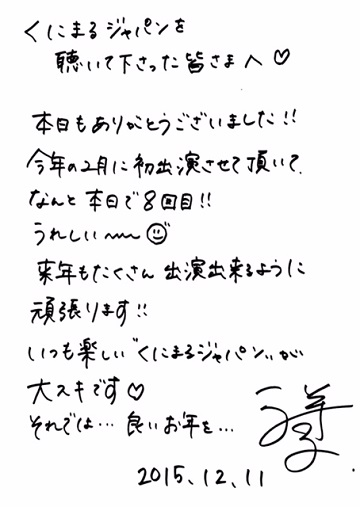 くにまるジャパンを
聴いて下さった皆さまへ♡
本日もありがとうございました!!
今年の2月に初出演させて頂いて、
なんと本日で8回目!!
うれしい〜〜☺
来年もたくさん出演出来るように
頑張ります!!
いつも楽しい〝くにまるジャパン〟が
大スキです♡
それでは…良いお年を…
2015.12.11